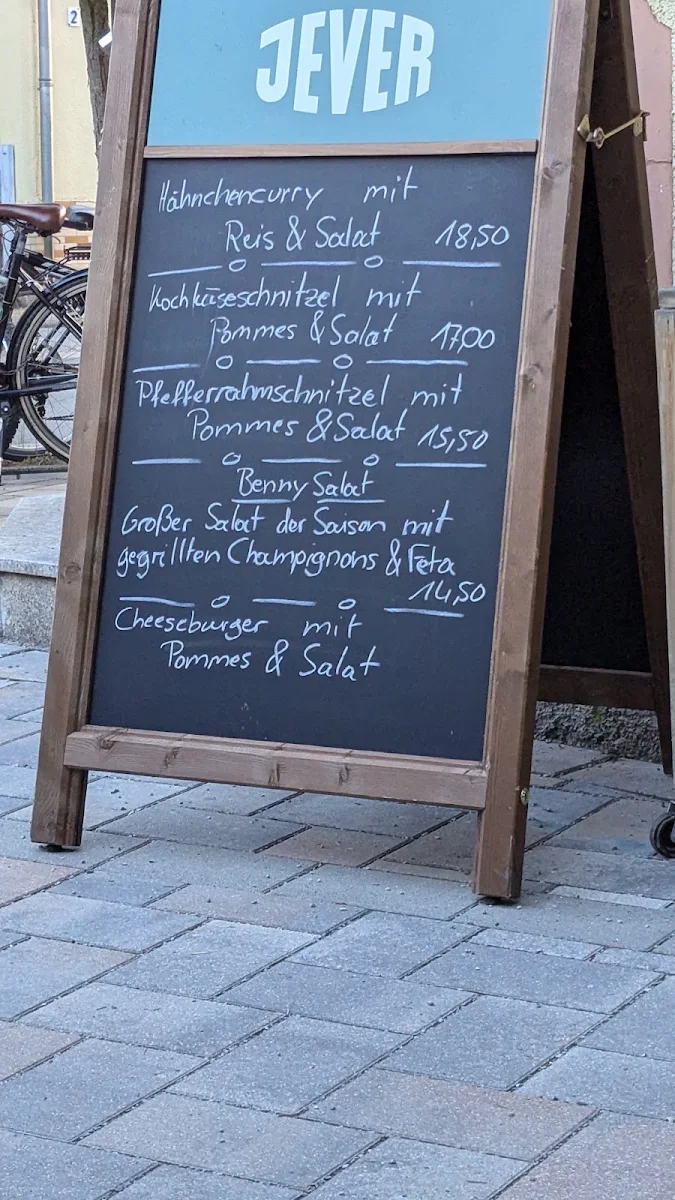 2
JEVER
Hähnchencurry mit
Reis & Salat 18,50
Kochkäseschnitzel mit
Pommes & Salat 17,00
Pfefferrahmschnitzel mit
Pommes & Salat 15,50
Benny Salat
Großer Salat der Saison mit
gegrillten Champignons & Feta
14,50
Cheeseburger mit
Pommes & Salat